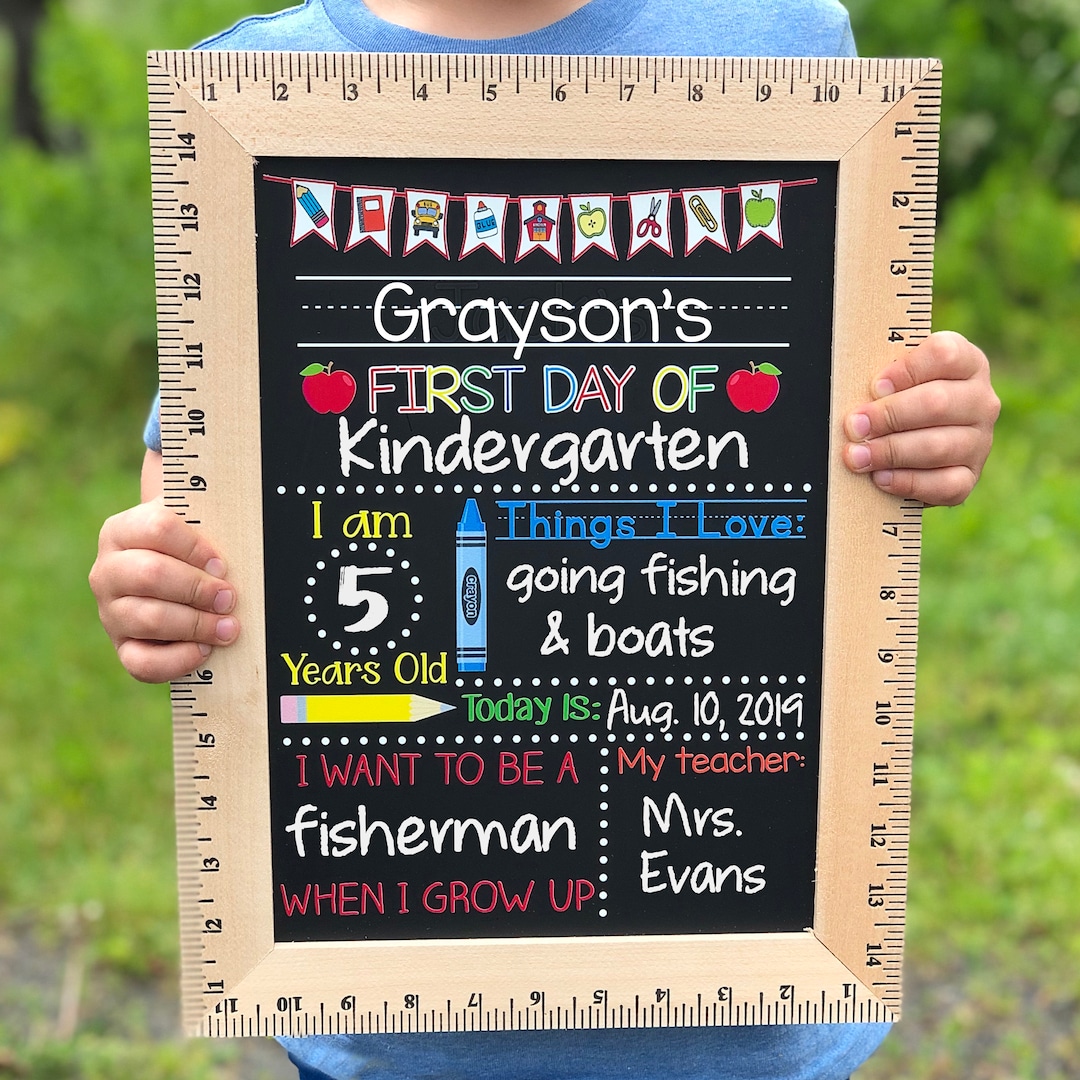 1 2 3 4 5 6 7 8 9 10 11
Grayson's
FIRST DAY OF
Kindergarten
I am
5
Years Old
crayon
Things I Love:
going fishing
& boats
Today Is: Aug. 10, 2019
I WANT TO BE A
fisherman
WHEN I GROW UP
My teacher:
Mrs.
Evans
GLUE
1 2 3 4 7 8 9 10 11 12 13 14
1 2 3 4 5 6 7 8 9 10 11
1 2 3 4 5 6 9 10 11 12 13 14